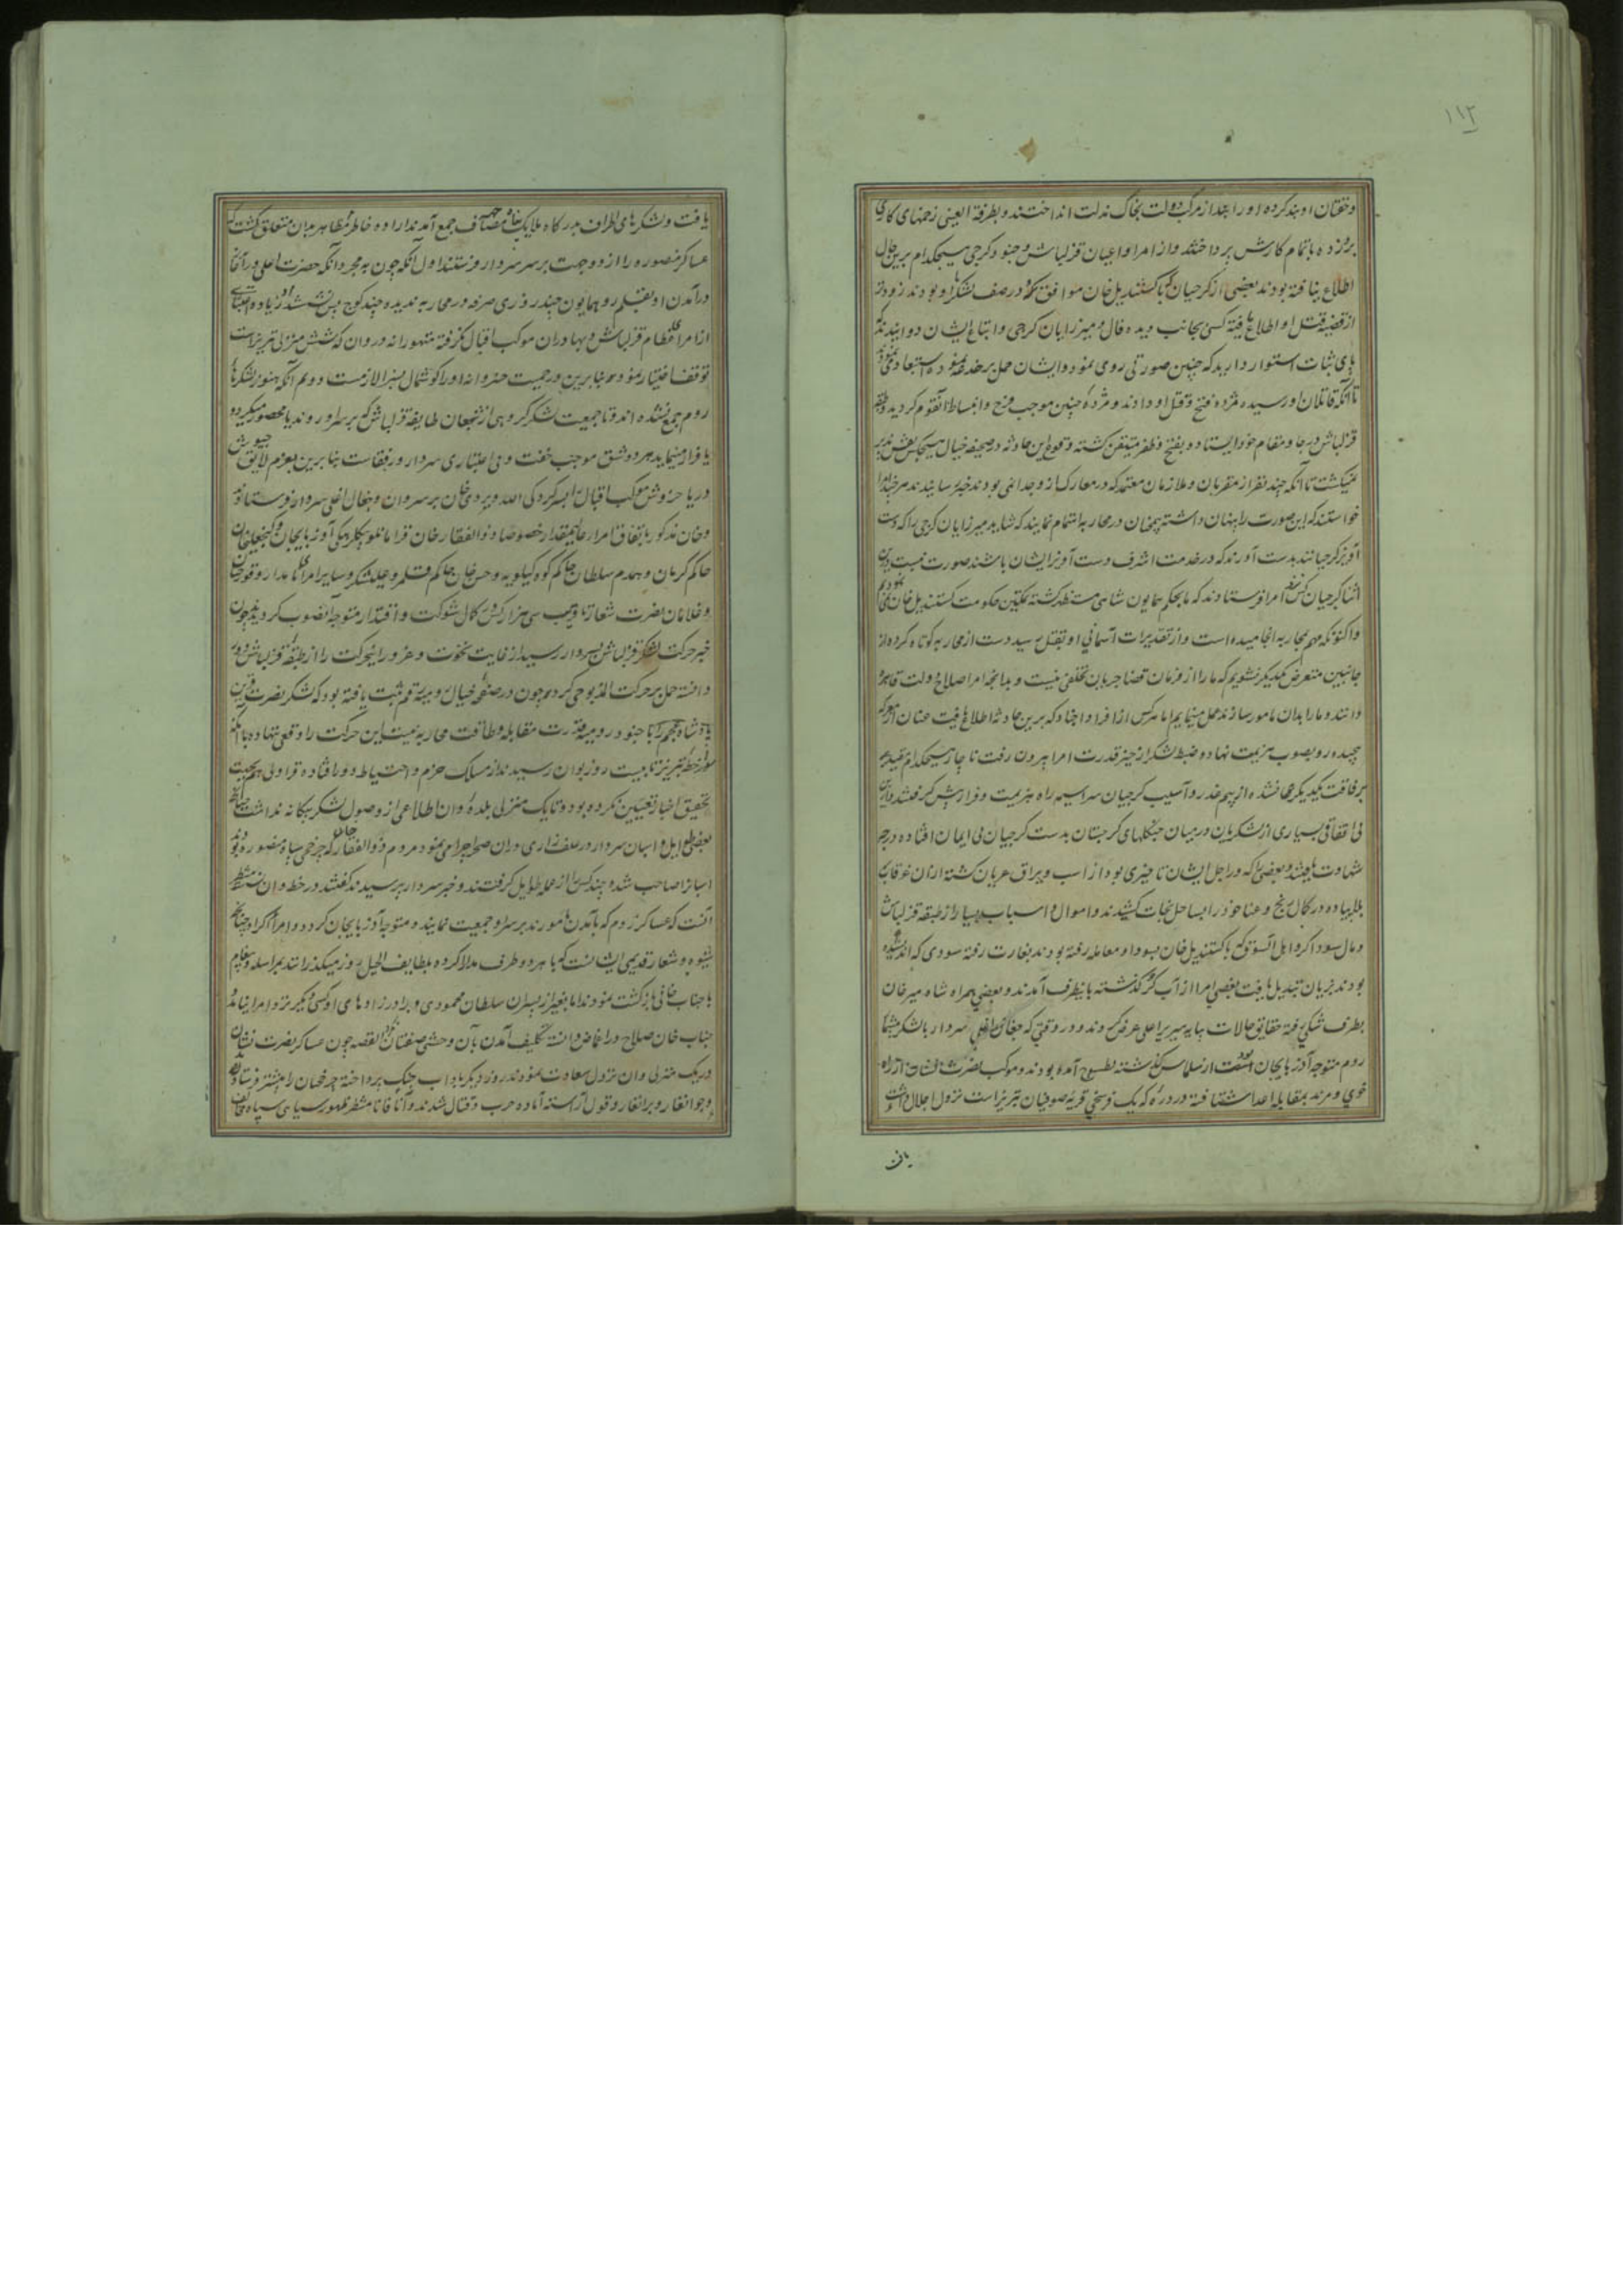 ۱۱۲
و خفتان او بند کرده او را بعد از مرکب دولت بخاک مذلت انداختند و بطرفة العینی زخمهای کاری
بروزده باتمام کارش پرداختند و از امرا و اعیان قزلباش و جنود کرجی هیچکدام برین حال
اطلاع نیافته بودند بعضی از کرجیان که با کستندیل خان موافق و در صف لشکر او بودند زودتر
از قضیه قتل او اطلاع یافته کسی بجانب دیده فال و میرزایان کرجی و اتباع ایشان دوانیدند که
پای ثبات استوار دارید که چنین صورتی روی نمود و ایشان حمل بر خدعه نموده استبعاد می نمودند
تا آنکه قاتلان او رسیده مژده فتح و قتل او دادند و مژده چنین موجب فرح و انبساط آنقوم کردید و
قزلباش در جا و مقام خود ایستاده و بفتح و ظفر متیقن کشته وقوع این حادثه در صحیفه خیال هیچکس نقش پذیر
نمیکشت تا آنکه چند نفر از مقربان و ملازمان معتمد که در معارک ازو جدا نمی بودند خبر رسانیدند
خواستند که این صورت را پنهان داشته همچنان در محاربه اهتمام نمایند که شاید میرزایان کرجی را که دست
آویز کرجیانند بدست آورند که در خدمت اشرف دست آویز ایشان باشد صورت نبست درین
اثنا کرجیان کس نزد امرا فرستادند که ما بحکم همایون شاهی مستظهر کشته بحکومت کستندیل خان
و اکنون که مهم بمحاربه انجامیده است و از تقدیرات آسمانی او بقتل رسید دست از محاربه کوتاه کرده از
جانبین متعرض یکدیکر نشویم که ما را از فرمان قضا جریان تخلفی نیست و بدانچه امرا صلاح دولت قاهره
دانند و ما را بدان مامور سازند عمل مینمایم اما هر کس از افراد اجناد که برین حادثه اطلاع یافت عنان از معرکه
پیچیده رو بصوب هزیمت نهاده ضبط لشکر از حیز قدرت امرا بیرون رفت ناچار هیچکدام مقید
برفاقت یکدیکر نشده از بیم غدر و آسیب کرجیان سراسیمه راه هزیمت و فرار پیش کرفتند درین
بی اتفاقی بسیاری از لشکریان در میان جنکلهای کرجستان بدست کرجیان بی ایمان افتاده درجه
شهادت یافتند و بعضی را که در اجل ایشان تاخیری بود از اسب و یراق عریان کشته از آن غرقاب
بلا پیاده در کمال رنج و عنا خود را بساحل نجات کشیدند و اموال و اسباب بسیار از طبقه قزلباش
و مال سوداکر و اهل اسوق که با کستندیل خان بسودا و معامله رفته بودند بغارت رفته سودی که اندیشیده
بودند بزیان تبدیل یافت بعضی امرا از آب کر کذشته باینطرف آمدند و بعضی همراه شاه میر خان
بطرف شکی رفته حقایق حالات بپایه سریر اعلی عرض کردند و در وقتی که جغال اغلی سردار با لشکر بیشمار
روم متوجه آذربایجان است از سلماس کذشته بطسوج آمده بودند و موکب نصرت نشان از راه
خوی و مرند بمقابله اعدا شتافته در دره که یک فرسخی قریه صوفیان تبریز است نزول اجلال داشت
یافت
یافت و لشکرهای اطراف بدرکاه ملایک مصاف جمع آمدند اراده خاطر بدان متعلق کشت که
عساکر منصوره را از دو جهت بر سر سردار فرستند اول آنکه چون بمجرد آنکه حضرت اعلی در آغاز
در آمدن او بقلمرو همایون چند روزی صرفه در محاربه ندیده چند کوچ پس نشستند
از امراء عظام قزلباش و بهادران موکب اقبال کرفته متهورانه در وان که شش منزلی تبریز است
توقف اختیار نموده بنابرین در جمیت خسروانه او را کوشمال بسزا لازمست دویم آنکه هنوز لشکرهای
روم جمع نشده اند و تا جمعیت لشکر کروهی از شجعان طایفه قزلباش که بر سر او روند یا محصور میکردد
یا فرار مینماید هر دو شق موجب خفت و بی اعتباری سردار و رفقاست بنابرین بعزم لایق جیوش
دریا خروش موکب اقبال بسرکردکی الله ویردی خان بر سر وان و جغال اغلی سردار فرستاده
و خان مذکور باتفاق امراء عالیمقدار خصوصا ذوالفقار خان قرامانلو بیکلربیکی آذربایجان و کنجعلیخان
حاکم کرمان و همدم سلطان حاکم کوه کیلویه و حسن خان حاکم قلمرو علیشکر و سایر امراء نامدار و قورچیان
و غلامان نصرت شعار تا قریب سی هزار کس در کمال شوکت و اقتدار متوجه انصوب کردیدند چون
خبر حرکت لشکر قزلباش بسردار رسید از غایت نخوت و غرور اینحرکت را از طبقه قزلباش دور
دانسته حمل بر حرکت المذبوحی کرد چون در صفحه خیال رومیه رقم ثبت یافته بود که لشکر نصرت قرین
پادشاه عجم را با جنود رومیه قدرت مقابله و طاقت محاربه نیست این حرکت را وقعی ننهاده با آنکه
از خطه تبریز تا بیست روز بوان رسیدند از مسالک حزم و احتیاط دور افتاده قراولی بجهت
تحقیق اخبار تعیین نکرده بود و تا یک منزلی بلده وان اطلاعی از وصول لشکر بیکانه نداشت
بعضی ایل و اسبان سردار در علف زاری در آن صحرا چرا می نمود مردم ذوالفقار خان که چرخچی سپاه منصوره بودند
اسبانرا صاحب شده چند کس را از عمله طوایل کرفتند و خبر سردار پرسیدند کفتند در خطه وان منتظر
آنست که عساکر روم که بآمدن مامورند بر سر او جمعیت نمایند و متوجه آذربایجان کردد و امراء اکراد چنانچه
شیوه و شعار قدیمی ایشانست که با هر دو طرف مدارا کرده بلطایف الحیل روز میکذرانند بمراسله و پیغام
با جناب خانی بازکشت نمودند اما بغیر از پسران سلطان محمودی و برادرزاده های او کسی دیکر نزد امرا نیامد و
جناب خان صلاح در اغماض دانسته تکلیف آمدن بآن وحشی صفتان نکرد القصه چون عساکر نصرت نشان
در یک منزلی وان نزول سعادت نمودند روز دیکر بآداب جنک پرداخته چرخچیان را پیشتر فرستاده
و جوانغار و برانغار و قول آراسته آماده حرب و قتال شدند و آنا فانا منتظر ظهور سیاهی سپاه مخالف